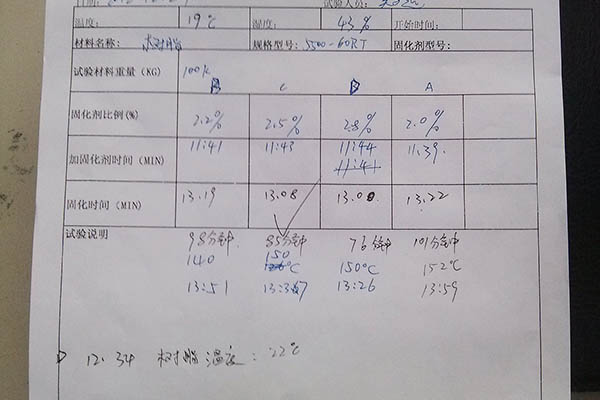 日期: 试验人员:
温度: 19℃ 湿度: 43% 开始时间:
材料名称: 水树脂 规格型号: 5500-60RT 固化剂型号:
试验材料重量 (KG) 100k
B C D A
固化剂比例(%) 2.2% 2.5% 2.8% 2.0%
加固化剂时间 (MIN) 11:41 11:43 11:44 11:39.
11:41
固化时间 (MIN) 13.19 13.08 13.00 13.22
试验说明 98分钟 85分钟 76分钟 101分钟
140 150 150℃ 152℃
13:51 13:37 13:26 13:59
12.34 树脂温度: 22℃